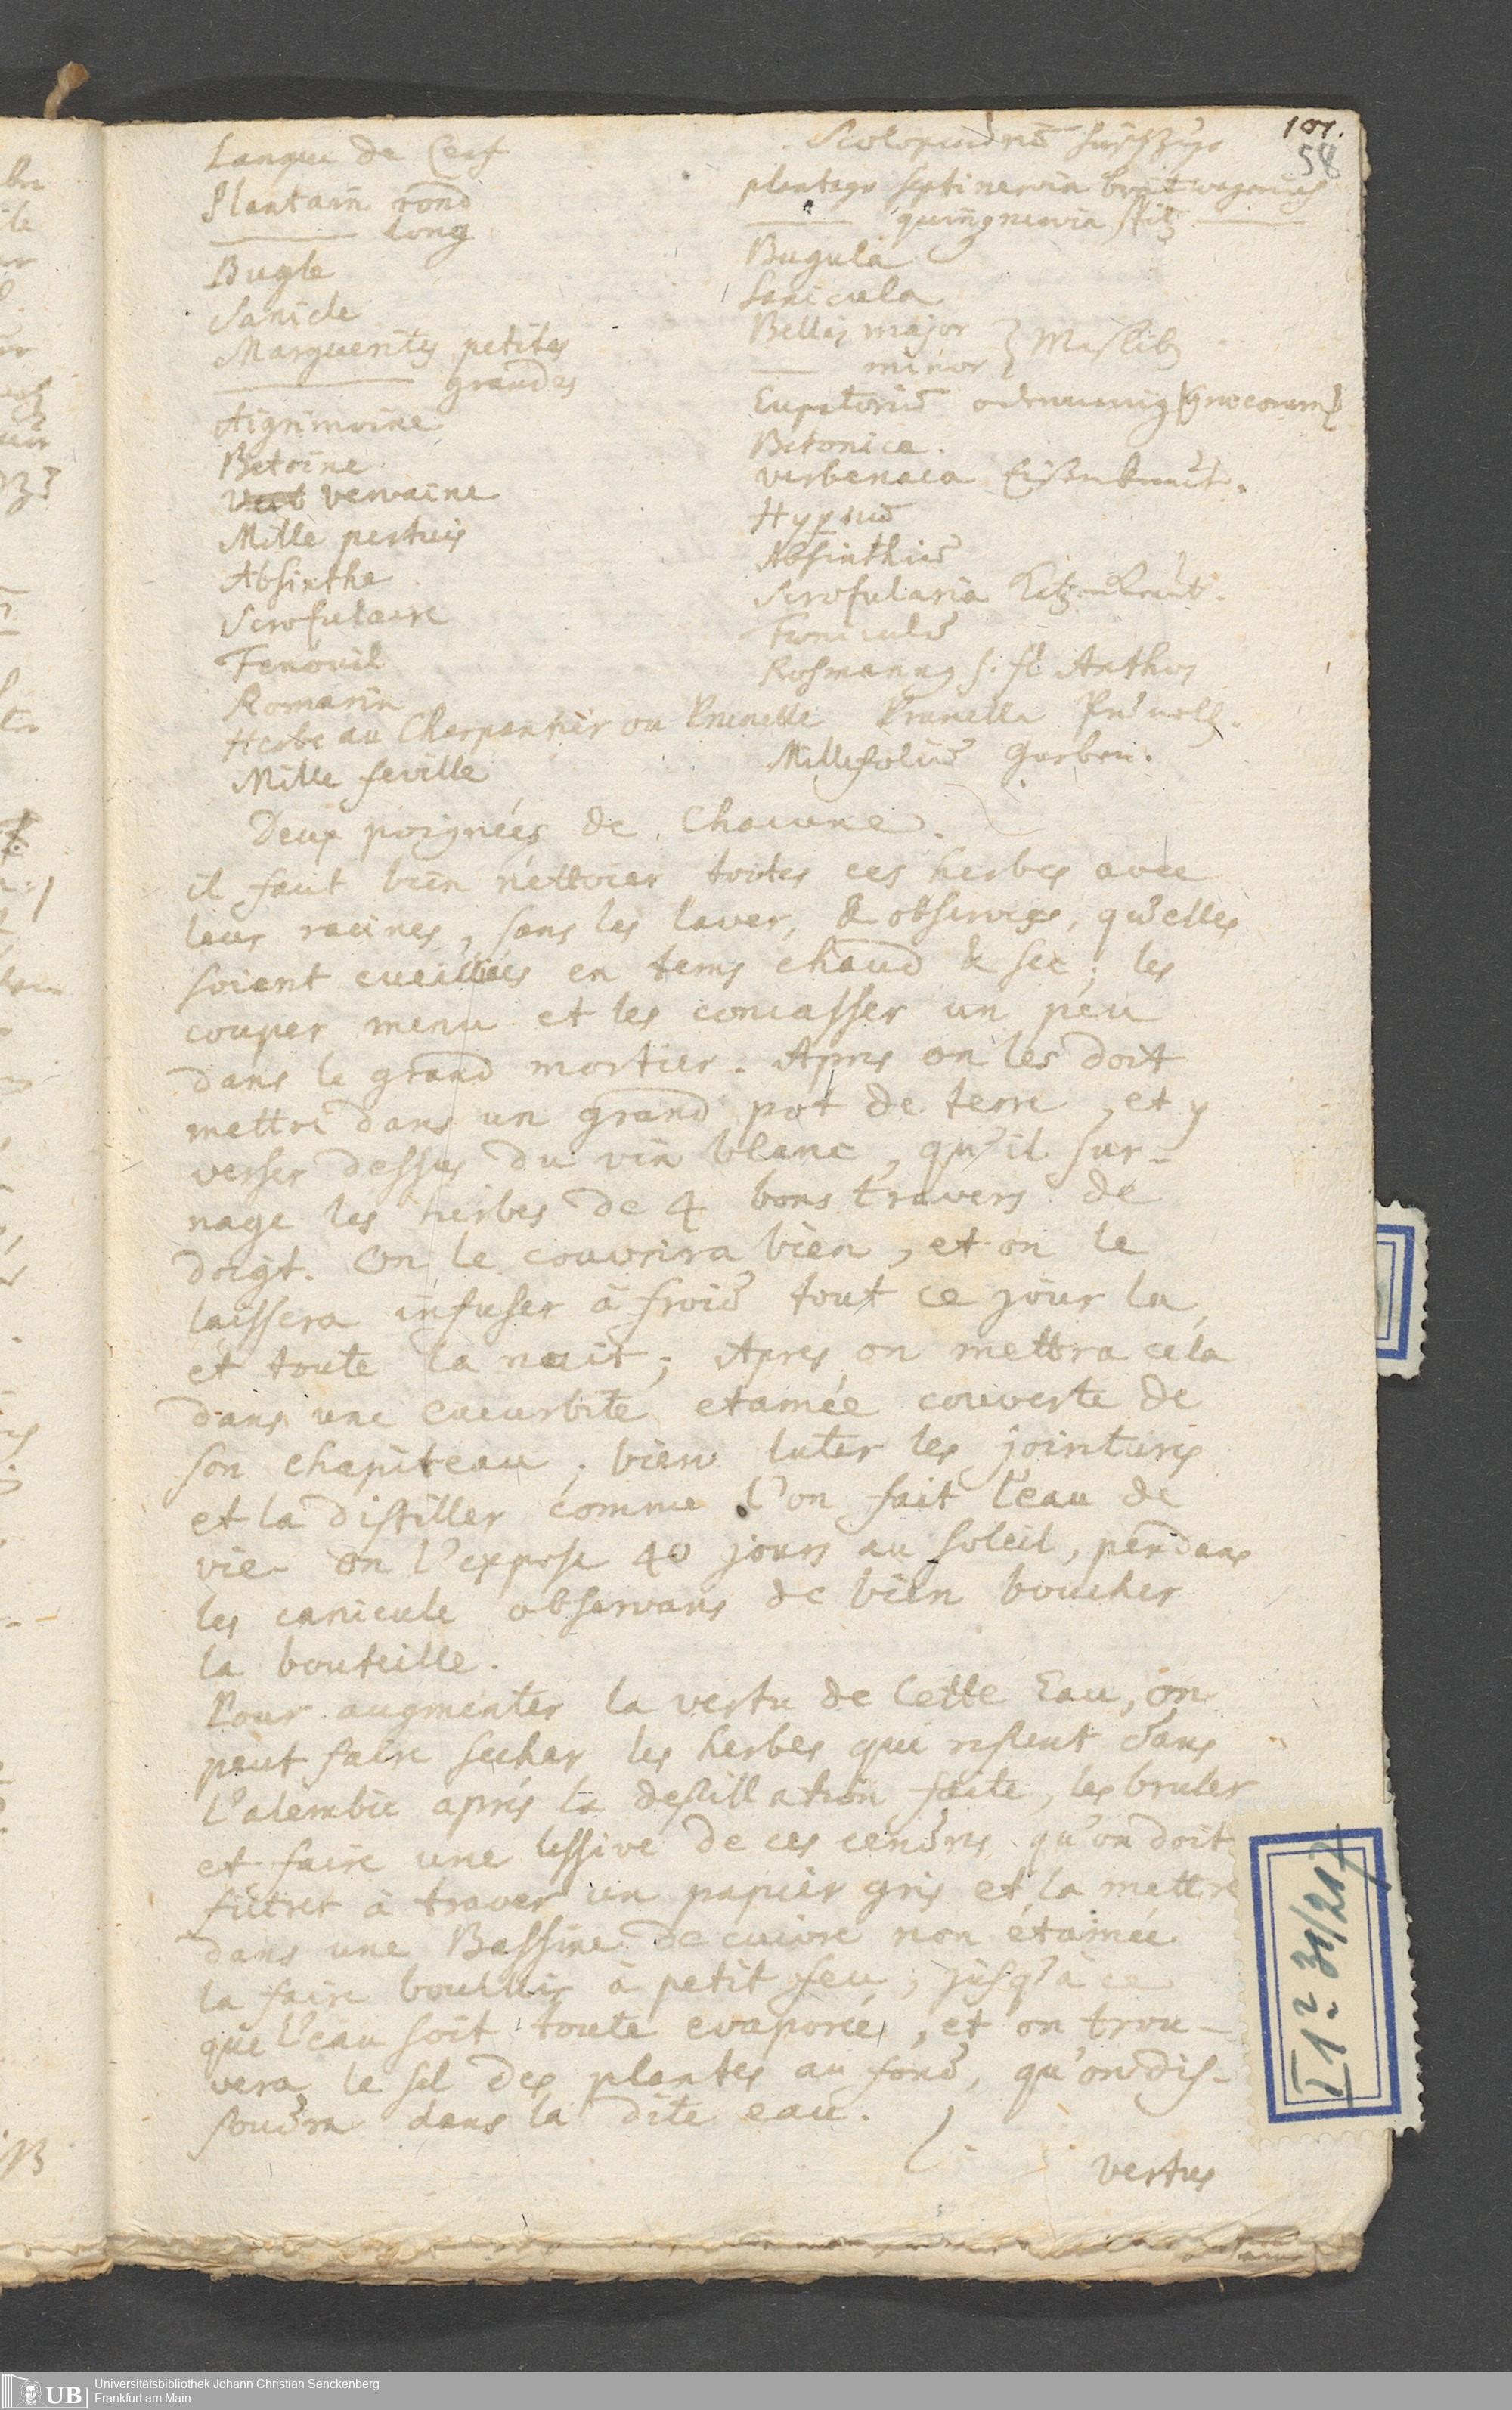 101.
58
Langue de Cerf Scolopendriū hirsch Zung
Plantain rond plantago septinervia breit wegerich
——— long ——— quinqnervia spitz ———
Bugle Bugula
Sanicle Sanicula
Marguerites petites Bellis major } Maslieb
——— grandes —— minor }
Aigrimoine Eupatoriū odermennig (grecorum)
Betoine Betonica.
vervaine verbenaca Eisenkraut.
Mille pertuis
Absinthe Absinthiū
Scrofulaire Scrofularia
Fenouil Foeniculū
Romarin Rosmarinus s. fl. Anthos
Herbe au Charpentier ou Prunelle Prunella Prunell.
Mille feuille Millefoliū Garben.
Deux poignées de Chacune.
il faut bien nettoier toutes ces herbes avec
leur racines, sans les laver, & observer, qu'elles
soient cueillies en tems chaud & sec; les
couper menu et les concasser un peu
dans le grand mortier. Apres on les doit
mettre dans un grand pot de terre, et y
verser dessus du vin blanc, qu'il sur-
nage les herbes de 4 bons travers de
doigt. On le couvrira bien, et on le
laissera infuser à froid tout ce jour la
et toute la nuit; Apres on mettra cela
dans une cucurbite etamée couverte de
son chapiteau; bien luter les jointures
et la distiller comme l'on fait l'eau de
vie. on l'expose 40 jours au soleil, pendans
les canicule observans de bien boucher
la bouteille.
Pour augmenter la vertu de Cette Eau, on
peut faire secher les herbes qui restent dans
l'alembic aprés la destillation faite, les bruler
et faire une lessive de ces cendres qu'on doit
filtrer à traver un papier gris et la mettre
dans une Bassine de cuivre non étamée
la faire bouillir à petit feu, jusq'à ce
que l'eau soit toute evaporée, et on trou-
vera le sel des plantes au fond, qu'on dis-
soudra dans la dite eau.
vertus
31/217
UB Universitätsbibliothek Johann Christian Senckenberg
Frankfurt am Main